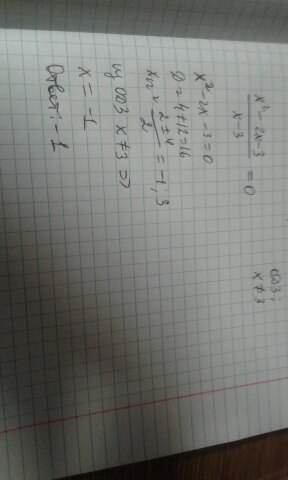 x² - 2x - 3
x - 3
= 0
ОДЗ:
x ≠ 3
x² - 2x - 3 = 0
D = 4 + 12 = 16
x₁,₂ = (2 ± 4)/2 = -1; 3
из ОДЗ x ≠ 3 =>
x = -1
Ответ: -1